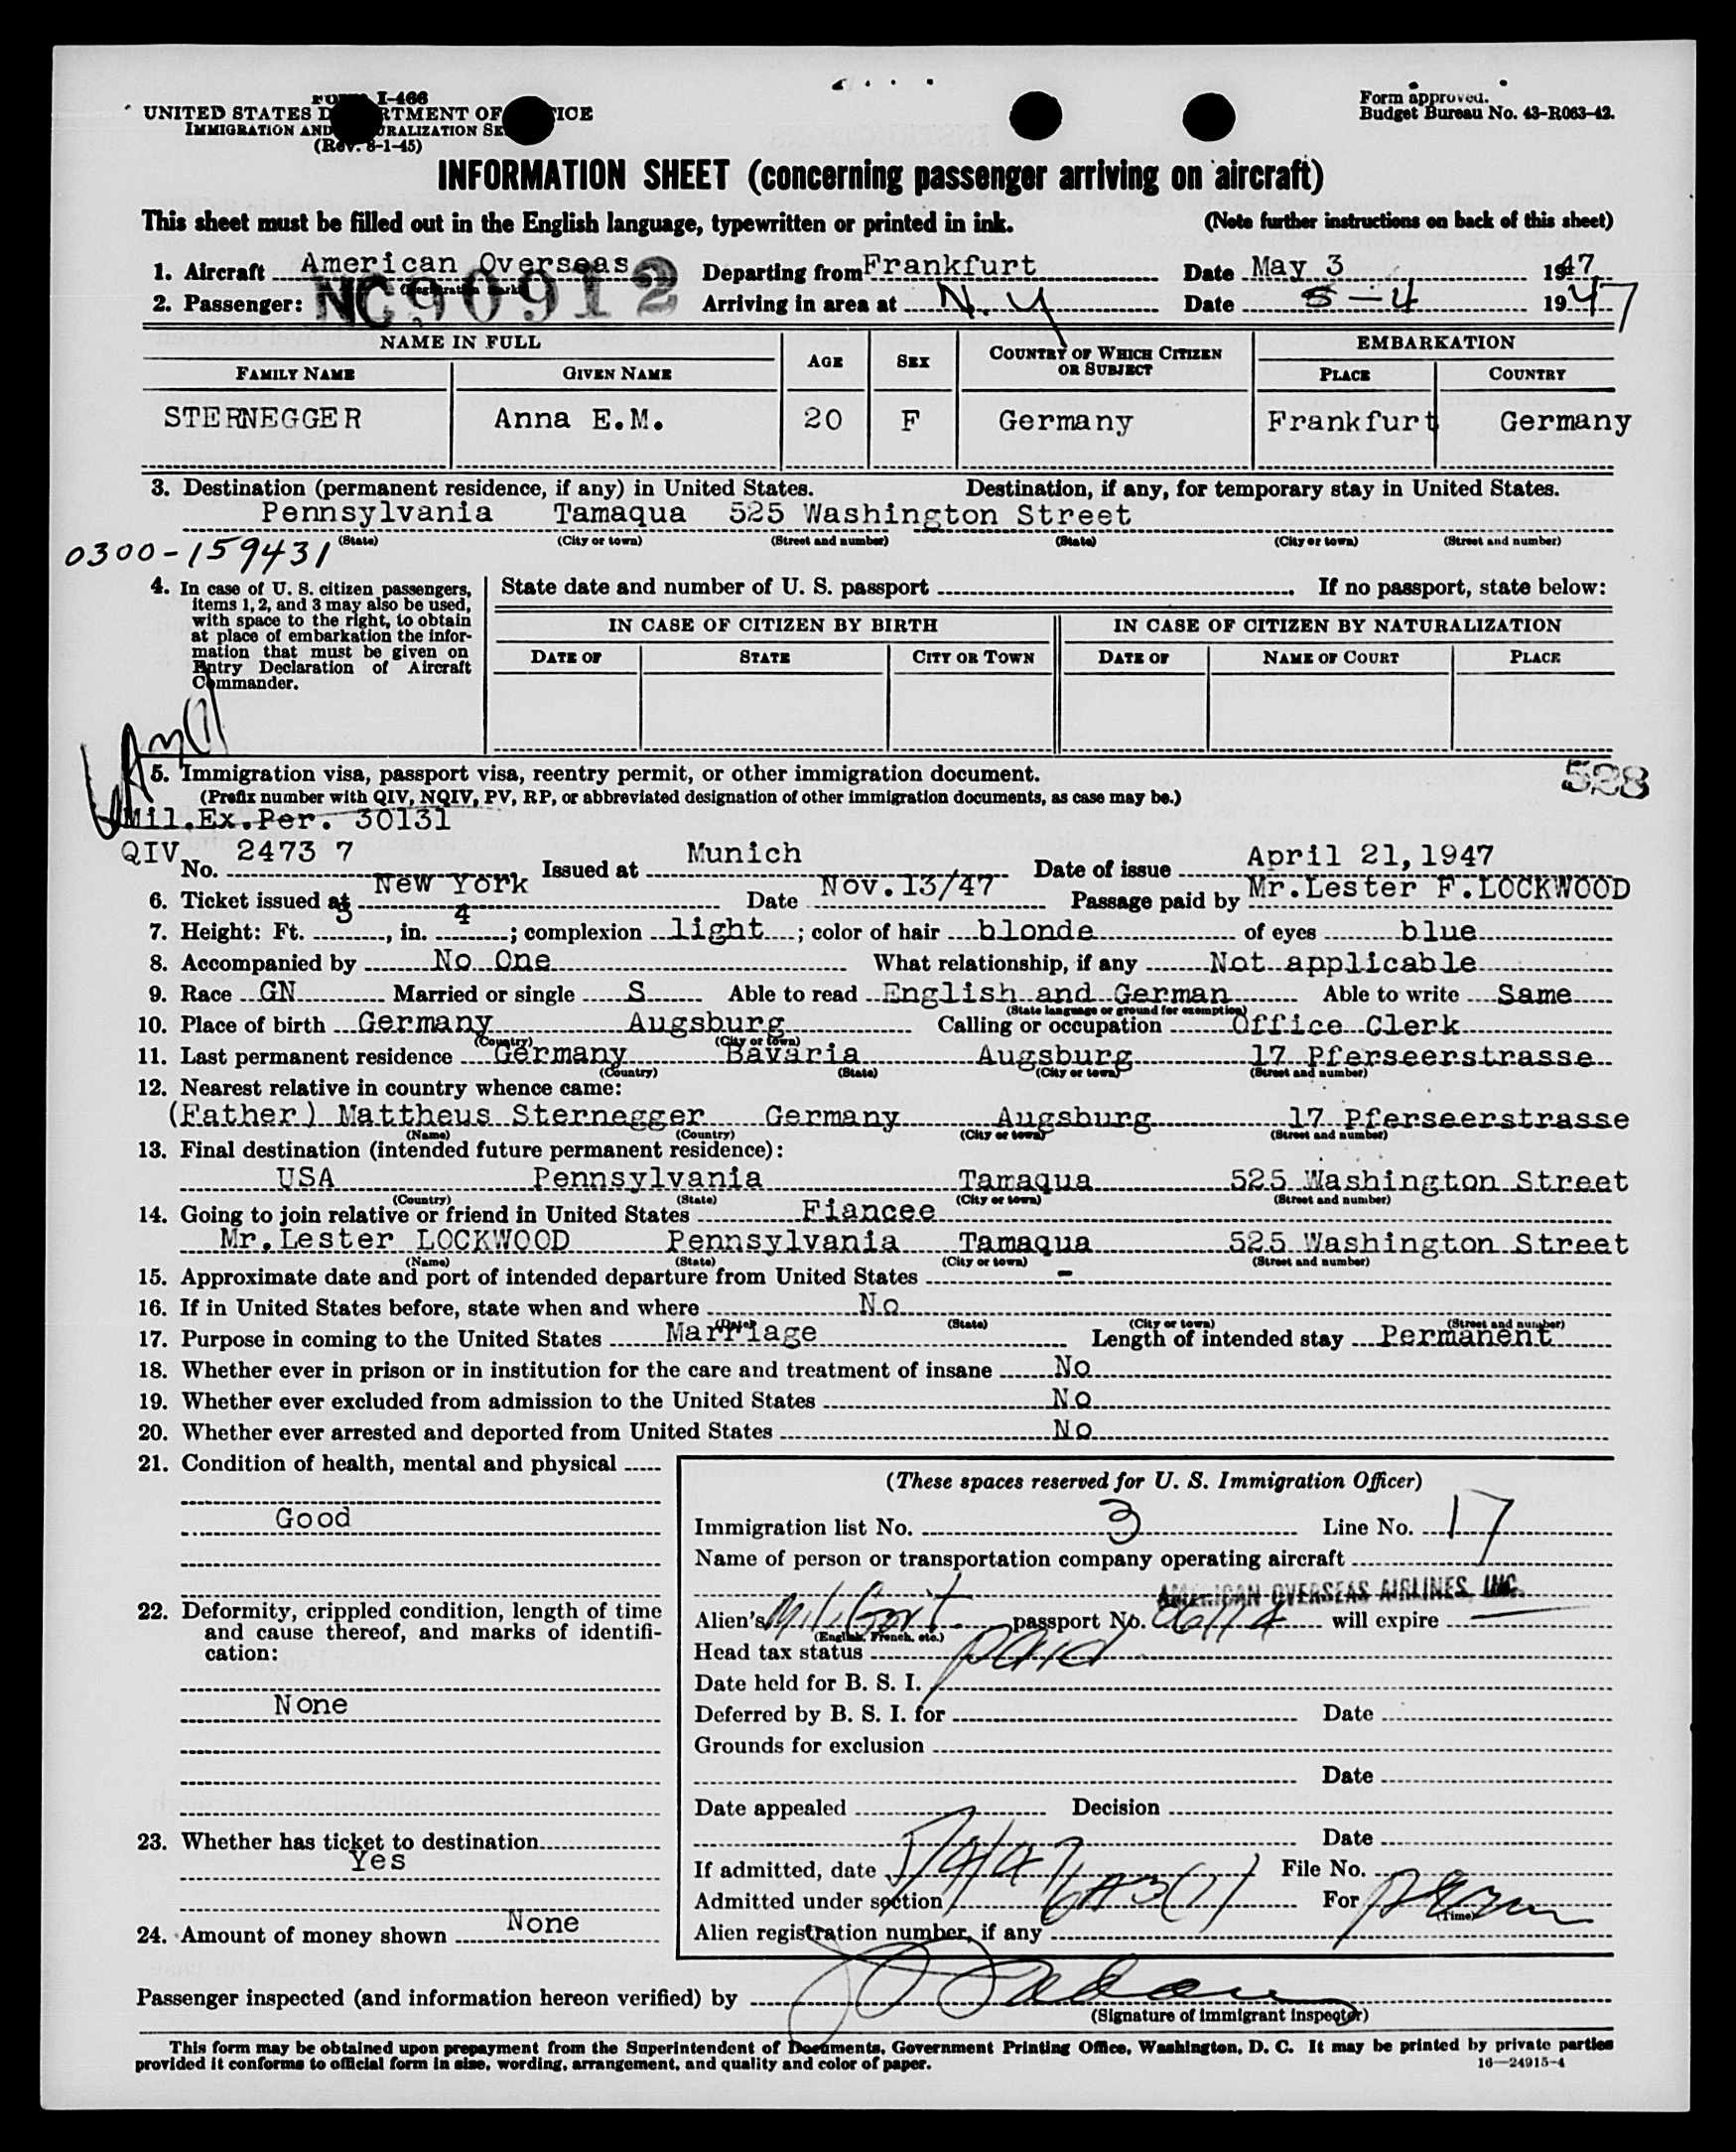 FORM I-466
UNITED STATES DEPARTMENT OF JUSTICE
IMMIGRATION AND NATURALIZATION SERVICE
(Rev. 8-1-45)
Form approved.
Budget Bureau No. 43-R063-42.
INFORMATION SHEET (concerning passenger arriving on aircraft)
This sheet must be filled out in the English language, typewritten or printed in ink. (Note further instructions on back of this sheet)
1. Aircraft American Overseas Departing from Frankfurt Date May 3 1947
(Registration mark)
2. Passenger: NC90912 Arriving in area at N.Y Date 5-4 1947
NAME IN FULL AGE SEX COUNTRY OF WHICH CITIZEN OR SUBJECT EMBARKATION
FAMILY NAME GIVEN NAME PLACE COUNTRY
STERNEGGER Anna E.M. 20 F Germany Frankfurt Germany
3. Destination (permanent residence, if any) in United States. Destination, if any, for temporary stay in United States.
Pennsylvania Tamaqua 525 Washington Street
(State) (City or town) (Street and number) (State) (City or town) (Street and number)
0300-159431
4. In case of U. S. citizen passengers, items 1, 2, and 3 may also be used, with space to the right, to obtain at place of embarkation the information that must be given on Entry Declaration of Aircraft Commander.
State date and number of U. S. passport If no passport, state below:
IN CASE OF CITIZEN BY BIRTH IN CASE OF CITIZEN BY NATURALIZATION
DATE OF STATE CITY OR TOWN DATE OF NAME OF COURT PLACE
5. Immigration visa, passport visa, reentry permit, or other immigration document. 528
(Prefix number with QIV, NQIV, PV, RP, or abbreviated designation of other immigration documents, as case may be.)
Mil.Ex.Per. 30131
QIV No. 2473 7 Issued at Munich Date of issue April 21,1947
6. Ticket issued at New York Date Nov.13/47 Passage paid by Mr.Lester F.LOCKWOOD
7. Height: Ft. 5, in. 4; complexion light; color of hair blonde of eyes blue
8. Accompanied by No One What relationship, if any Not applicable
9. Race GN Married or single S Able to read English and German Able to write Same
(State language or ground for exemption)
10. Place of birth Germany Augsburg Calling or occupation Office Clerk
(Country) (City or town)
11. Last permanent residence Germany Bavaria Augsburg 17 Pferseerstrasse
(Country) (State) (City or town) (Street and number)
12. Nearest relative in country whence came:
(Father) Mattheus Sternegger Germany Augsburg 17 Pferseerstrasse
(Name) (Country) (City or town) (Street and number)
13. Final destination (intended future permanent residence):
USA Pennsylvania Tamaqua 525 Washington Street
(Country) (State) (City or town) (Street and number)
14. Going to join relative or friend in United States Fiancee
Mr.Lester LOCKWOOD Pennsylvania Tamaqua 525 Washington Street
(Name) (State) (City or town) (Street and number)
15. Approximate date and port of intended departure from United States -
16. If in United States before, state when and where No
(Date) (State) (City or town) (Street and number)
17. Purpose in coming to the United States Marriage Length of intended stay Permanent
18. Whether ever in prison or in institution for the care and treatment of insane No
19. Whether ever excluded from admission to the United States No
20. Whether ever arrested and deported from United States No
21. Condition of health, mental and physical
Good
22. Deformity, crippled condition, length of time and cause thereof, and marks of identification:
None
23. Whether has ticket to destination
Yes
24. Amount of money shown None
(These spaces reserved for U. S. Immigration Officer)
Immigration list No. 3 Line No. 17
Name of person or transportation company operating aircraft
AMERICAN OVERSEAS AIRLINES, INC.
Alien's Mil Govt passport No. will expire
(English, French, etc.)
Head tax status paid
Date held for B. S. I.
Deferred by B. S. I. for Date
Grounds for exclusion
Date
Date appealed Decision
Date
If admitted, date 5/4/47 File No.
Admitted under section 6A3(1) For perm
(Time)
Alien registration number, if any
Passenger inspected (and information hereon verified) by
(Signature of immigrant inspector)
This form may be obtained upon prepayment from the Superintendent of Documents, Government Printing Office, Washington, D. C. It may be printed by private parties
provided it conforms to official form in size, wording, arrangement, and quality and color of paper. 16—24915-4